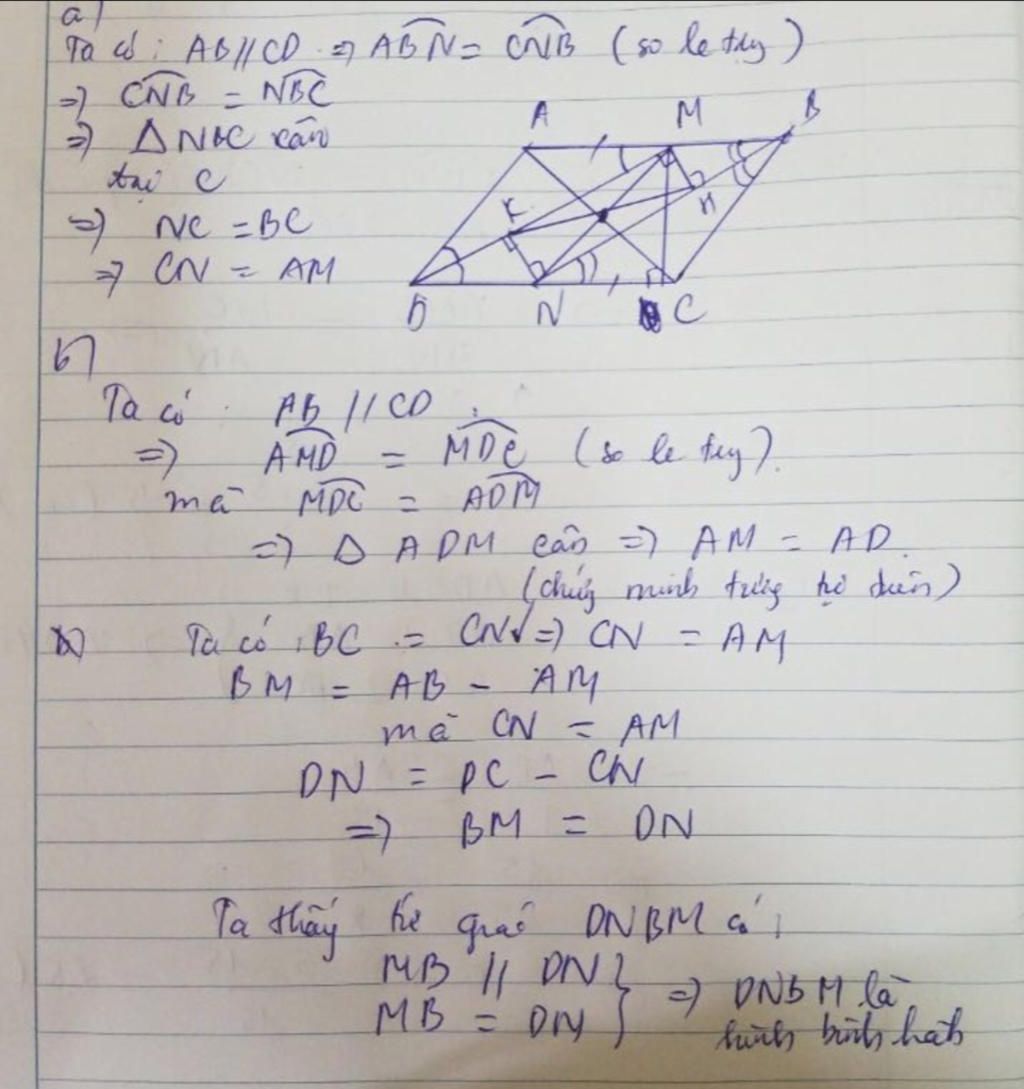 a)
Ta có: AB//CD ⇒ ABN = CNB (so le trg)
⇒ CNB = NBC
⇒ Δ NBC cân
tại C
⇒ NC = BC
⇒ CN = AM
A M B
K H
D N C
b)
Ta có AB // CD
⇒ AMD = MDC (so le trg).
mà MDC = ADM
⇒ Δ ADM cân ⇒ AM = AD.
(chứng minh tương tự trên)
Ta có: BC = CN ⇒ CN = AM
BM = AB - AM
mà CN = AM
DN = DC - CN
⇒ BM = DN
Ta thấy tứ giác DNBM có:
MB // DN
MB = DN } ⇒ DNBM là
hình bình hành